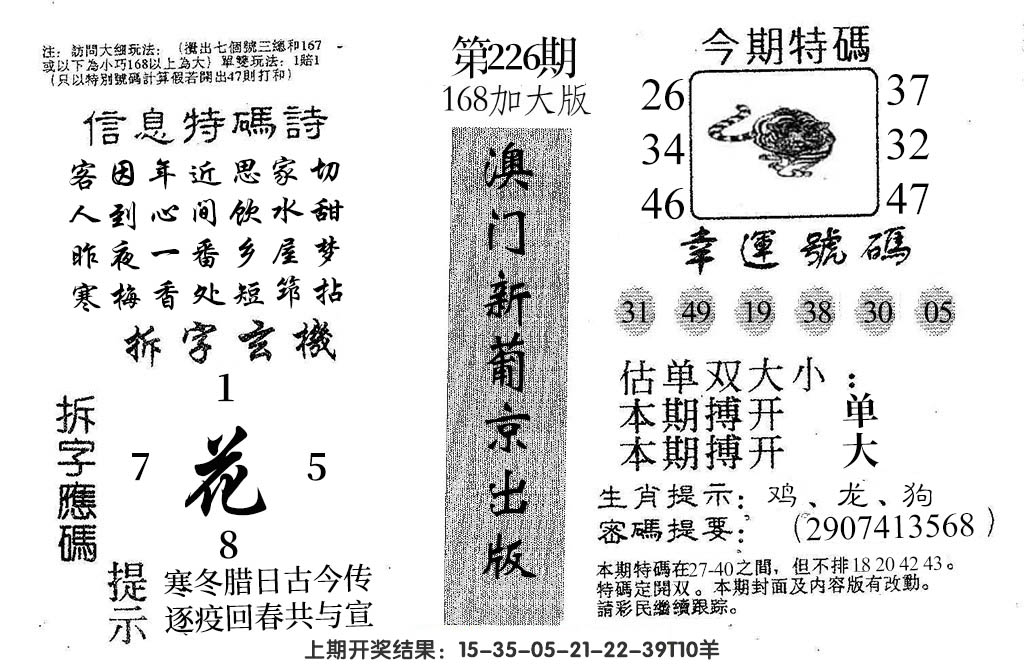 注：訪問大细玩法：（攪出七個號三總和167
或以下為小巧168以上為大）單雙玩法：1賠1
（只以特別號碼計算假若開出47則打和）
信息特碼詩
客因年近思家切
人到心间飲水甜
昨夜一番乡屋梦
寒梅香处短笻拈
拆字玄機
拆字應碼
1
7 花 5
8
提示
寒冬腊日古今传
逐疫回春共与宣
第226期
168加大版
澳门新葡京出版
今期特碼
26 37
34 32
46 47
幸運號碼
31 49 19 38 30 05
估单双大小：
本期搏开 单
本期搏开 大
生肖提示：鸡、龙、狗
密碼提要：（2907413568）
本期特碼在27-40之間，但不排18 20 42 43。
特碼定開双。本期封面及内容版有改動。
請彩民繼續跟踪。
上期开奖结果：15-35-05-21-22-39T10羊